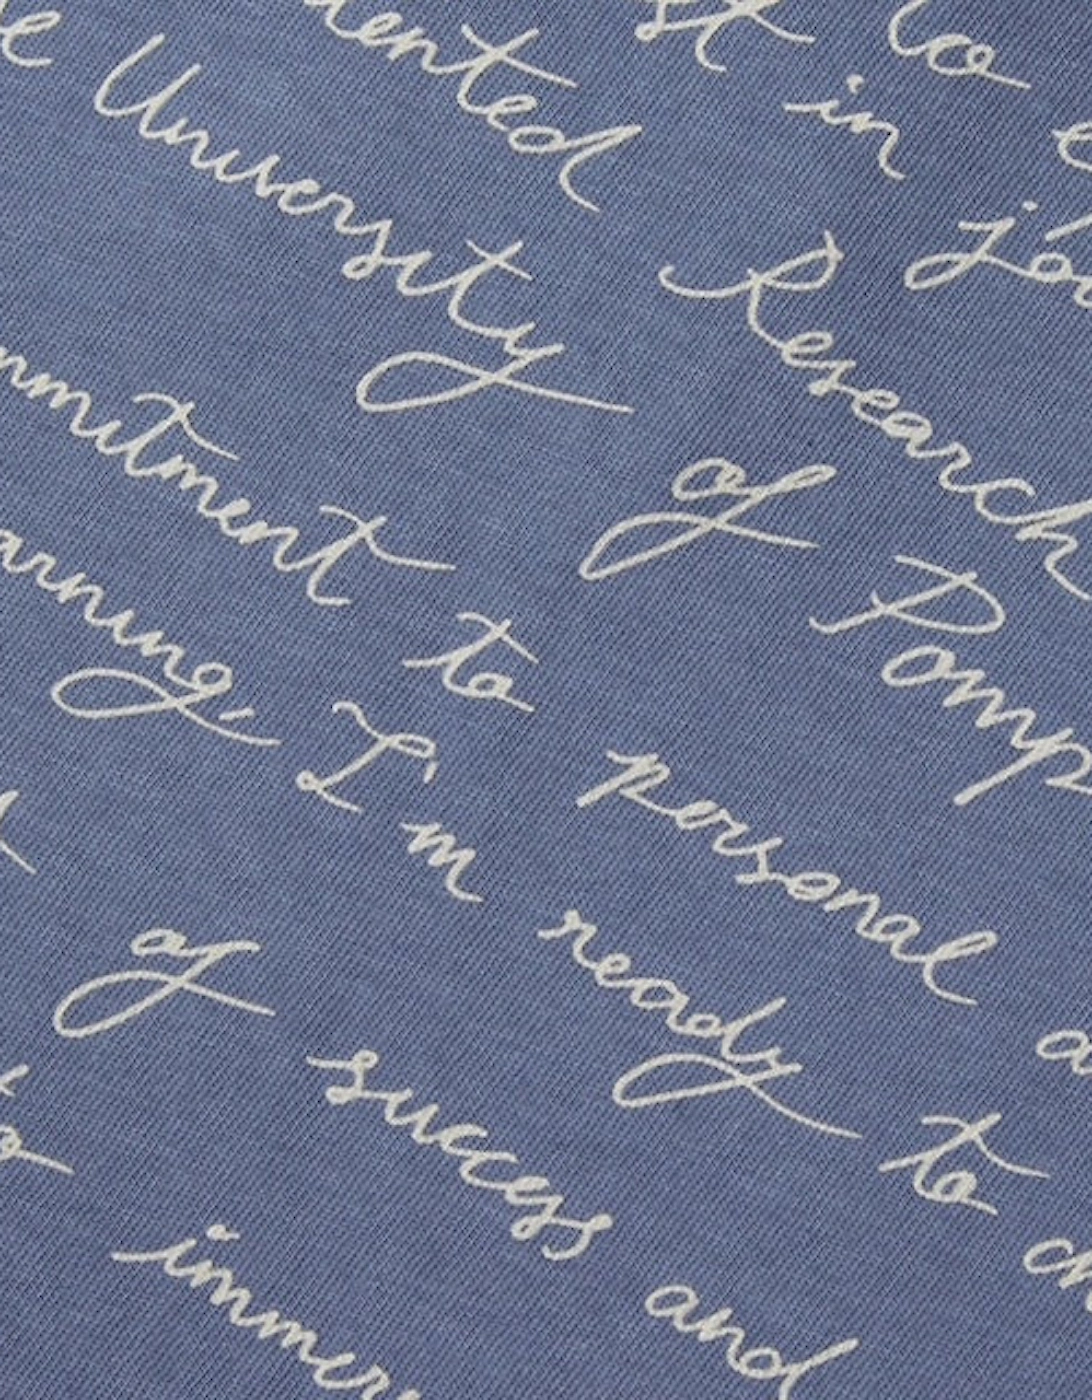 to
st in jou
ented Research
e University of Pomp
mmitment to personal a
arning, I'm ready to ch
of success and
to immer